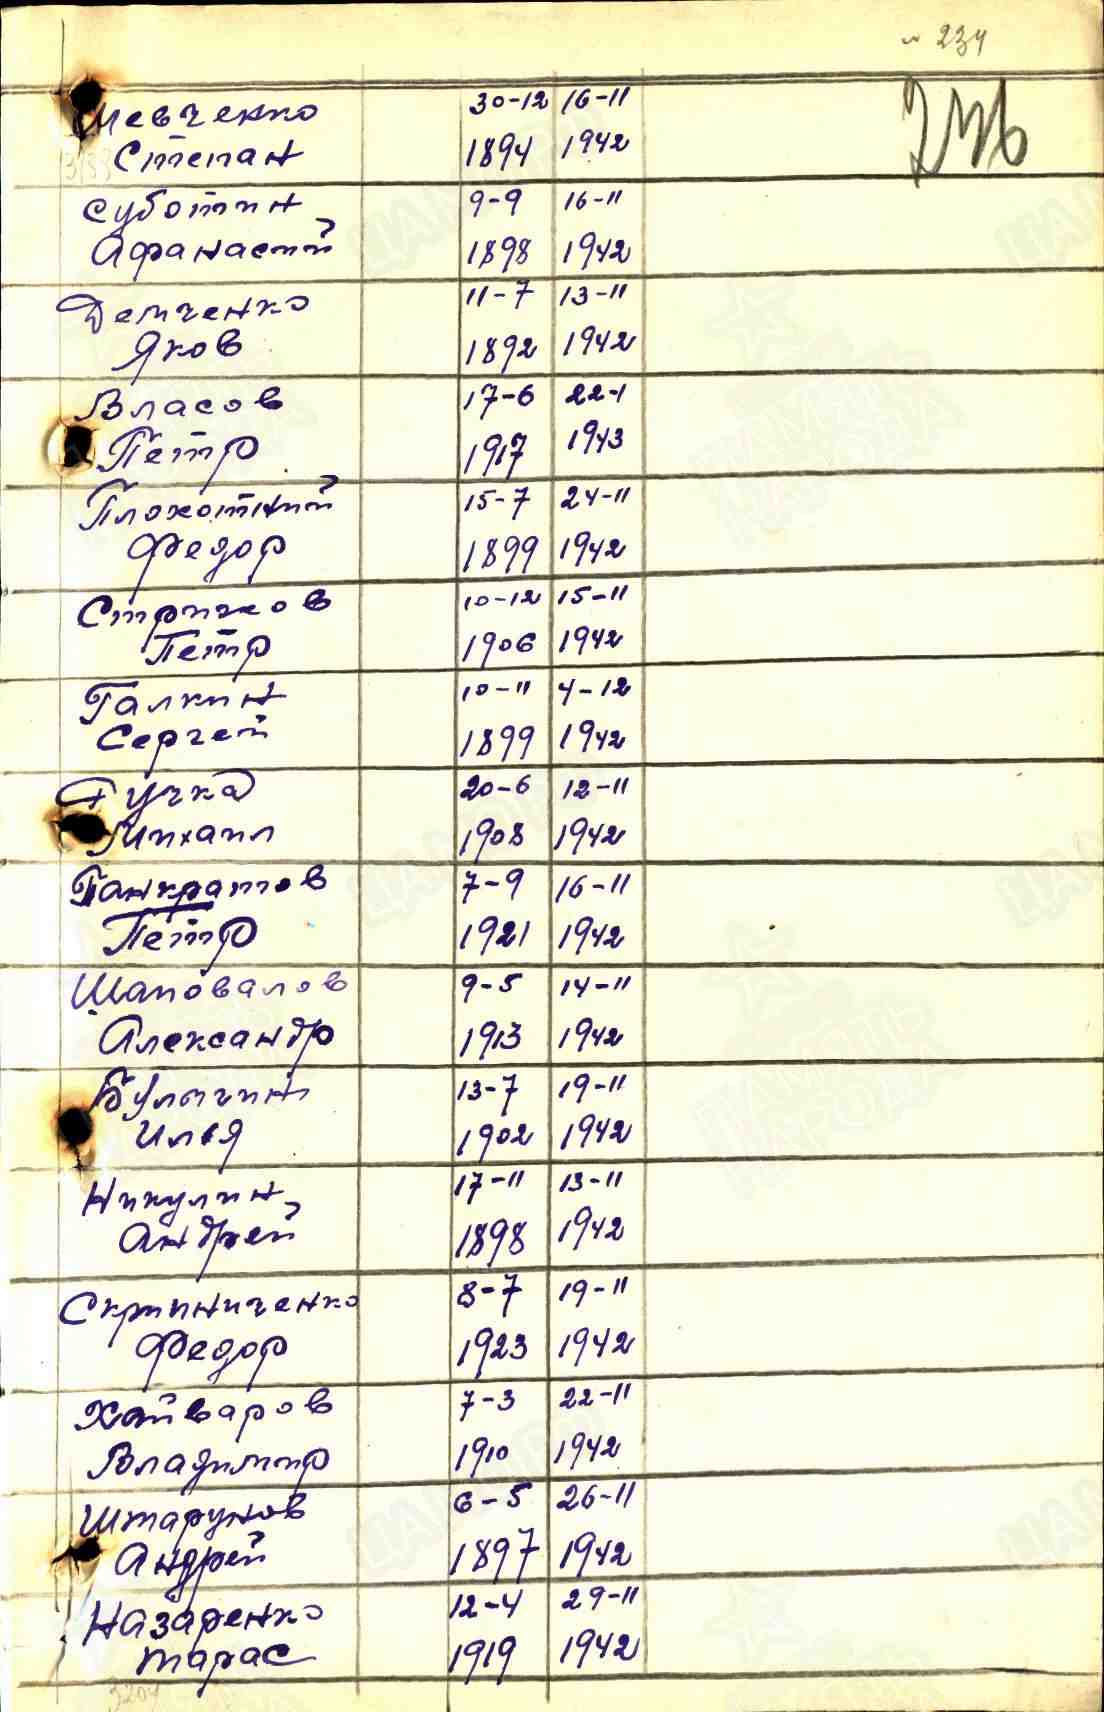 234
Шевченко 30-12 16-11
Степан 1894 1942
Суботин 9-9 16-11
Афанасий 1898 1942
Демченко 11-7 13-11
Яков 1892 1942
Власов 17-6 22-1
Петр 1917 1943
Плохотний 15-7 24-11
Федор 1899 1942
Стричков 10-12 15-11
Петр 1906 1942
Галкин 10-11 4-12
Сергей 1899 1942
Гучка 20-6 12-11
Михаил 1908 1942
Панкратов 7-9 16-11
Петр 1921 1942
Шаповалов 9-5 14-11
Александр 1913 1942
Булычин 13-7 19-11
Илья 1902 1942
Никулин 17-11 13-11
Андрей 1898 1942
Скрыниченко 8-7 19-11
Федор 1923 1942
Хайваров 7-3 22-11
Владимир 1910 1942
Штарунов 6-5 26-11
Андрей 1897 1942
Назаренко 12-4 29-11
Тарас 1919 1942